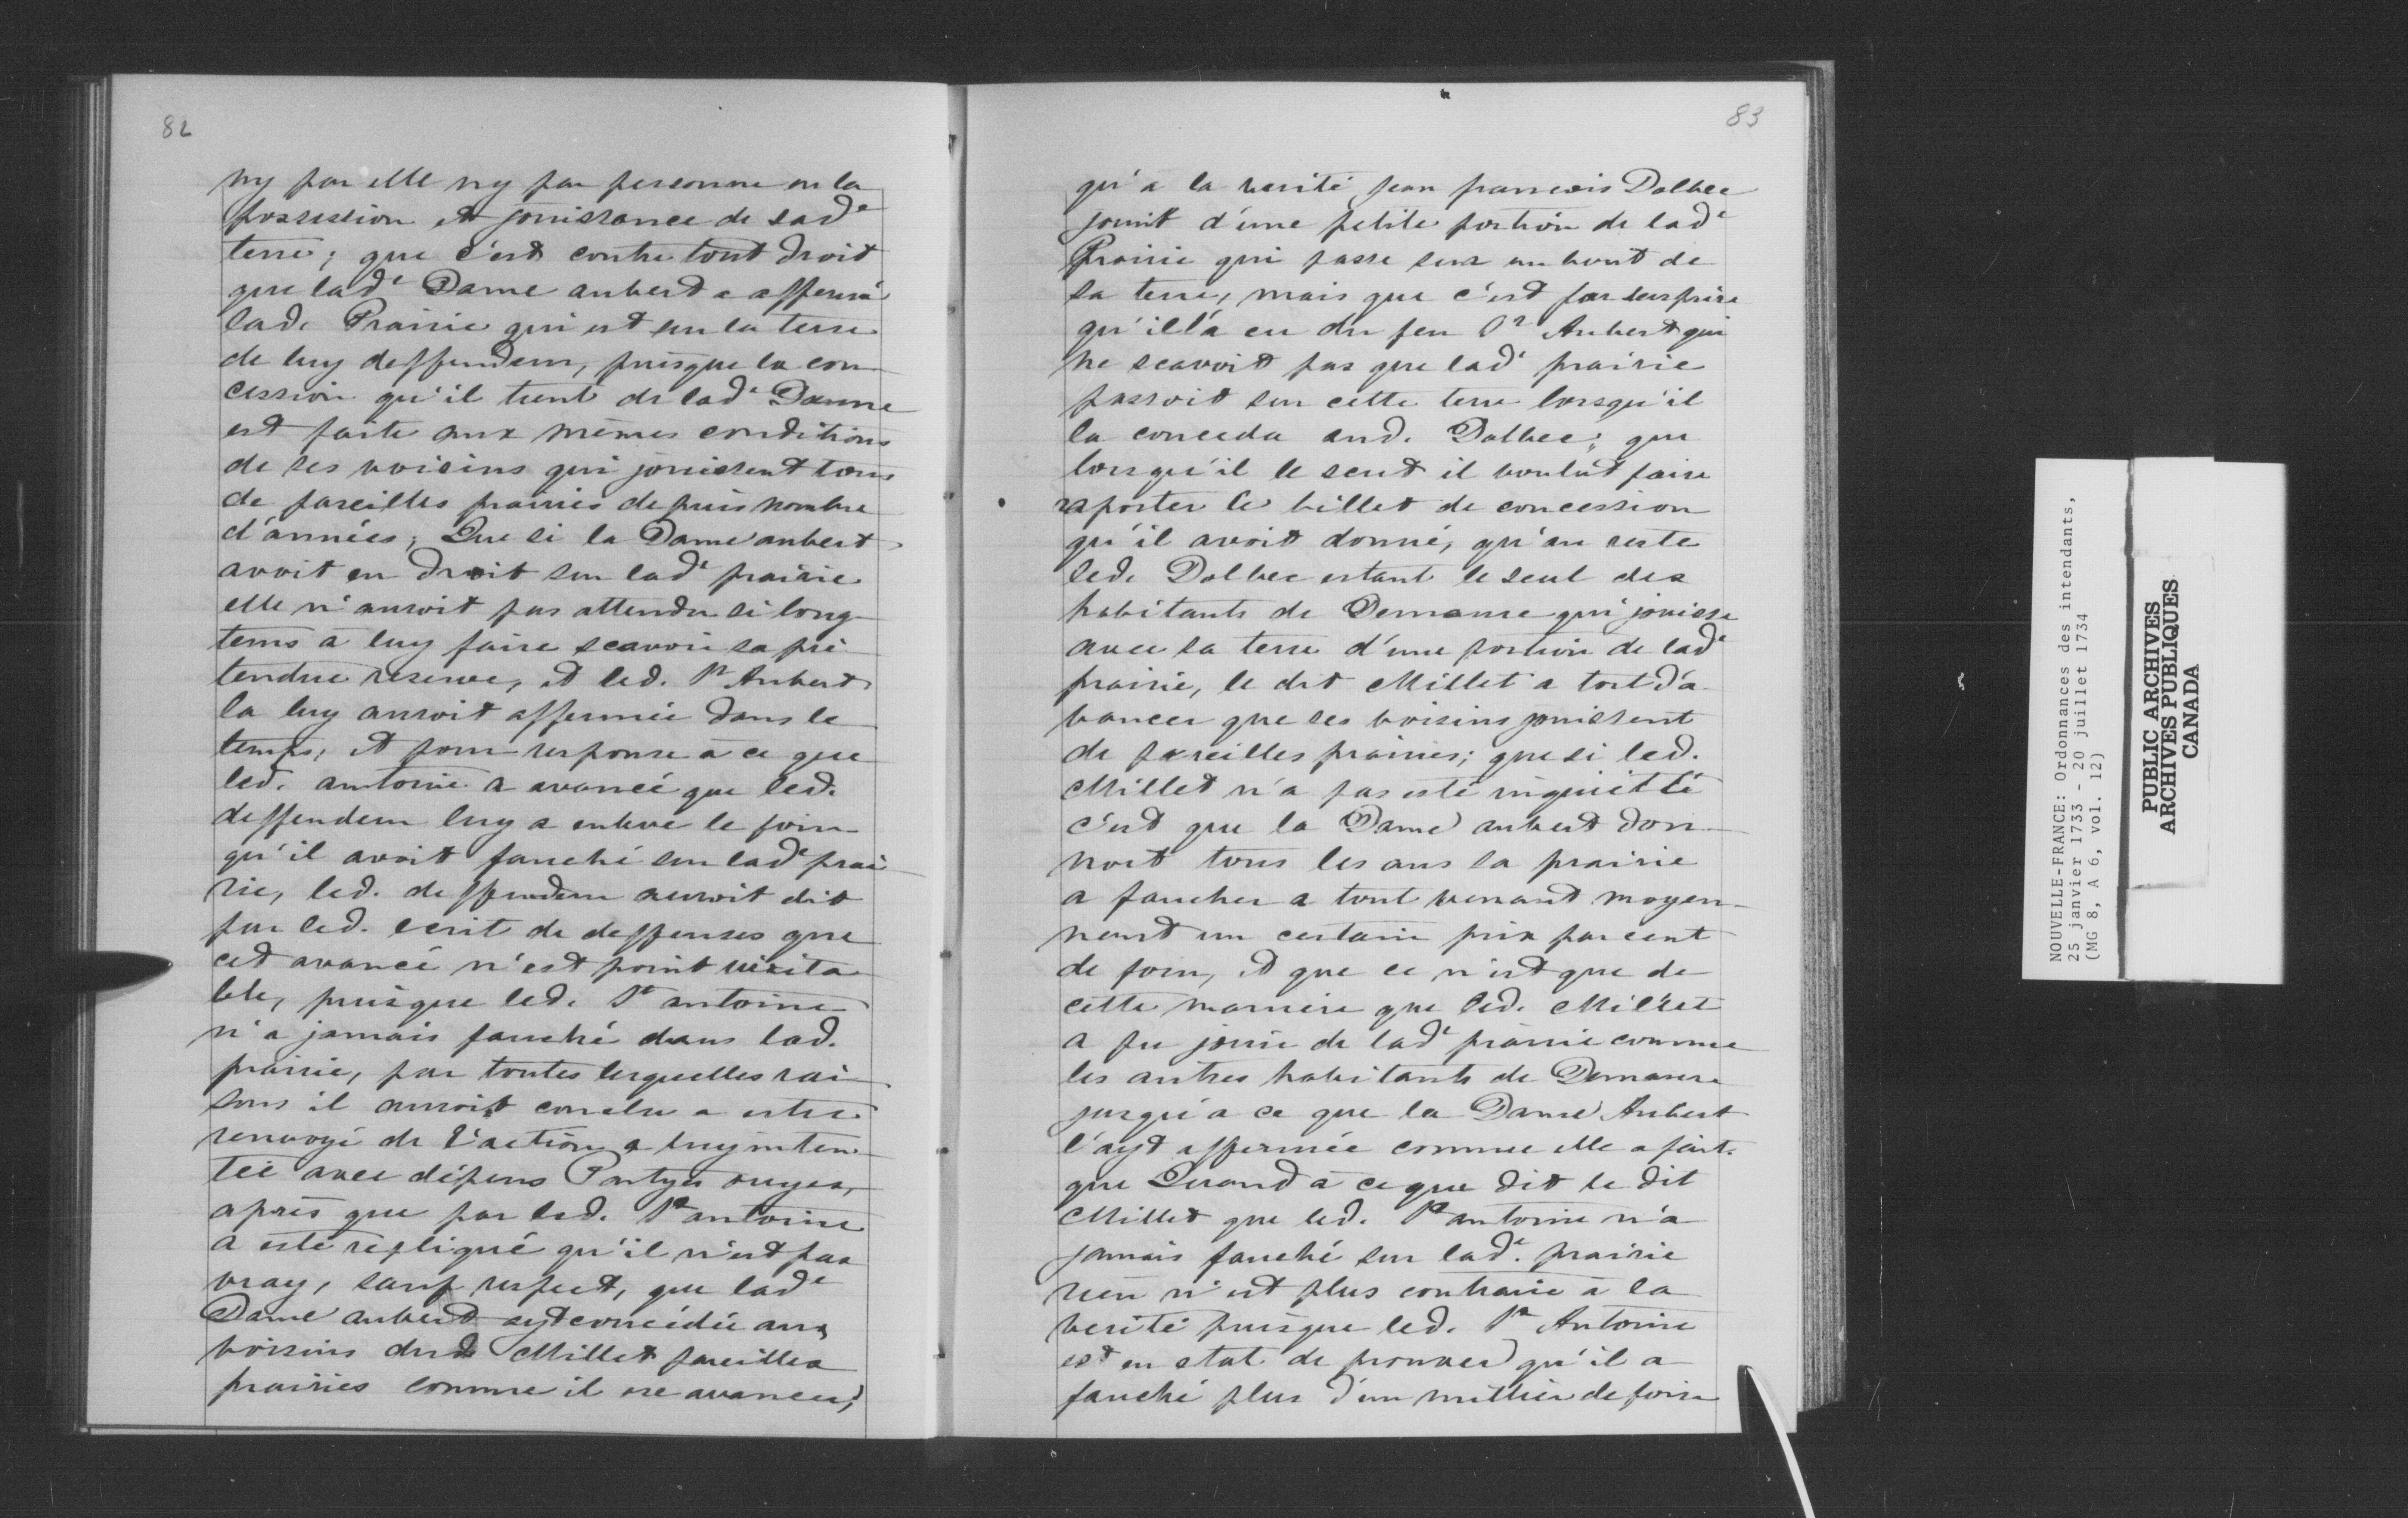 82
ny par elle ny par personne en la
possession et jouissance de sade
terre; que c'est contre tout droit
que lade Dame aubert a affermé
lad. Prairie qui est sur la terre
de luy deffendeur, puisque la con
cession qu'il tient de lade Dame
est faite aux mêmes conditions
de ses voisins qui jouissent tous
de pareilles prairies depuis nombre
d'années; Que si la Dame aubert
avoit eu droit sur lade prairie
elle n'auroit pas attendu si long
tems à luy faire scavoir sa pré
tendue reserve, et led. Sr Aubert
la luy auroit affermée dans le
temps; et pour responce à ce que
led. antoine a avancé que led.
deffendeur luy a enleve le foin
qu'il avoit fauché sur lade prai
rie, led. deffendeur auroit dit
par led. ecrit de deffenses que
cet avancé n'est point vérita
ble, puisque led. St antoine
n'a jamais fauché dans lad.
prairie, par toutes lesquelles rai
sons il auroit conclu a estre
renvoyé de l'action a luy inten
téé avec dépens Partyes ouyes,
après que par led. St antoine
a esté repliqué qu'il n'est pas
vray, sauf respect, que lade
Dame aubert ayt concédée aux
voisins dud Millet pareilles
prairies comme il ose avancer;
83
qu'à la verité jean francois Dolbec
jouit d'une petite portion de lade
Prairie qui passe sur un bout de
sa terre, mais que c'est par surprise
qu'il l'a eu du feu Sr Aubert qui
ne scavoit pas que lade prairie
passoit sur cette terre lorsqu'il
la conceda aud. Dolbec; que
lorsqu'il le sceut il voulut faire
raporter le billet de concession
qu'il avoit donné, qu'au reste
led. Dolbec estant le seul des
habitants de Demaure qui jouisse
avec sa terre d'une portion de lade
prairie, le dit Millet a tort d'a
vancer que ses voisins jouissent
de pareilles prairies; que si led.
Millet n'a pas esté inquiétté
c'est que la Dame aubert don
noit tous les ans sa prairie
a faucher a tout venant moyen
nant un certain prix par cent
de foin, et que ce n'est que de
cette manière que led. Millet
a pu jouir de lade prairie comme
les autres habitants de Demaure
jusqu'a ce que la Dame Aubert
l'ayt affermée comme elle a fait.
que Quand à ce que dit le dit
Millet que led. St antoine n'a
jamais fauché sur lade. prairie
rien n'est plus contraire à la
verité puisque led. St Antoine
est en etat de prouver qu'il a
fauché plus d'un millier de foin
NOUVELLE-FRANCE: Ordonnances des intendants,
25 janvier 1733 - 20 juillet 1734
(MG 8, A 6, vol. 12)
PUBLIC ARCHIVES
ARCHIVES PUBLIQUES
CANADA